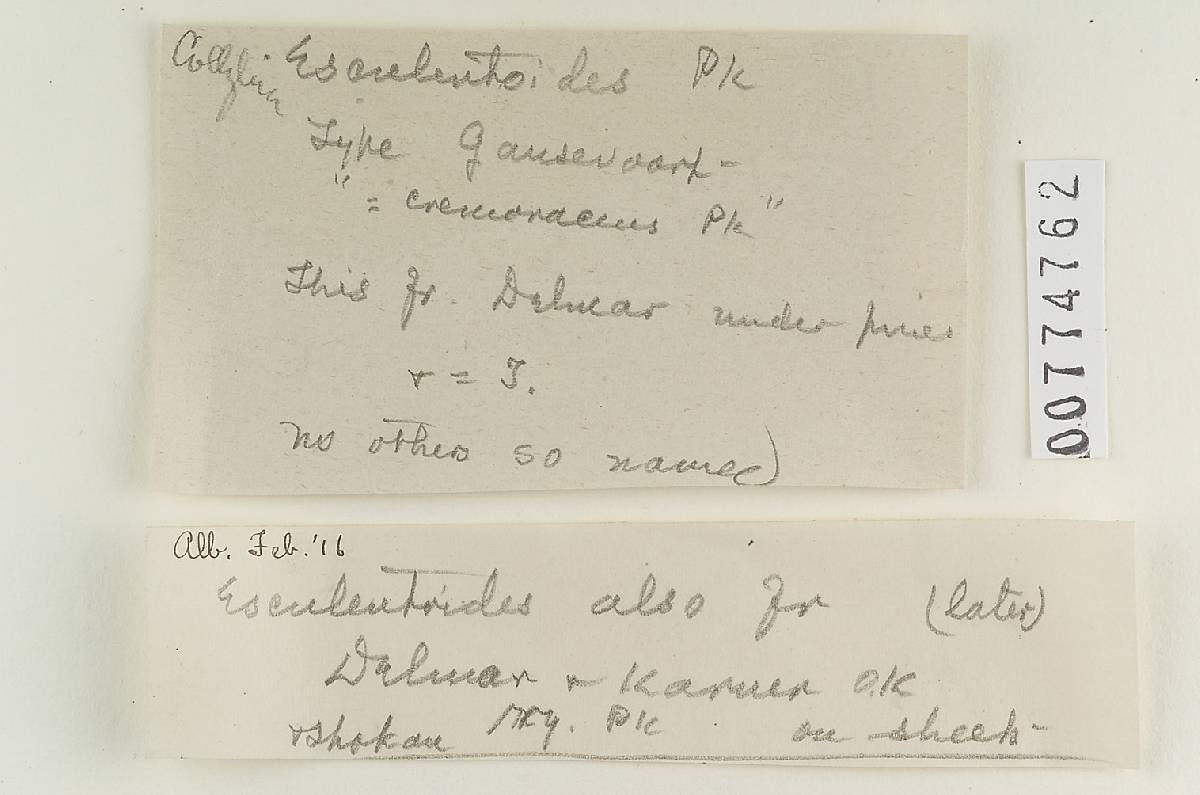 Collybia Esculentoides Pk
Type Gansevoort
" = cremoraceus Pk "
This fr. Delmar under pines
+ = T.
no others so named
00774762
Alb. Feb. '16
Esculentoides also fr (later)
Delmar + Karner OK
+ Shokan N.Y. Pk on sheet